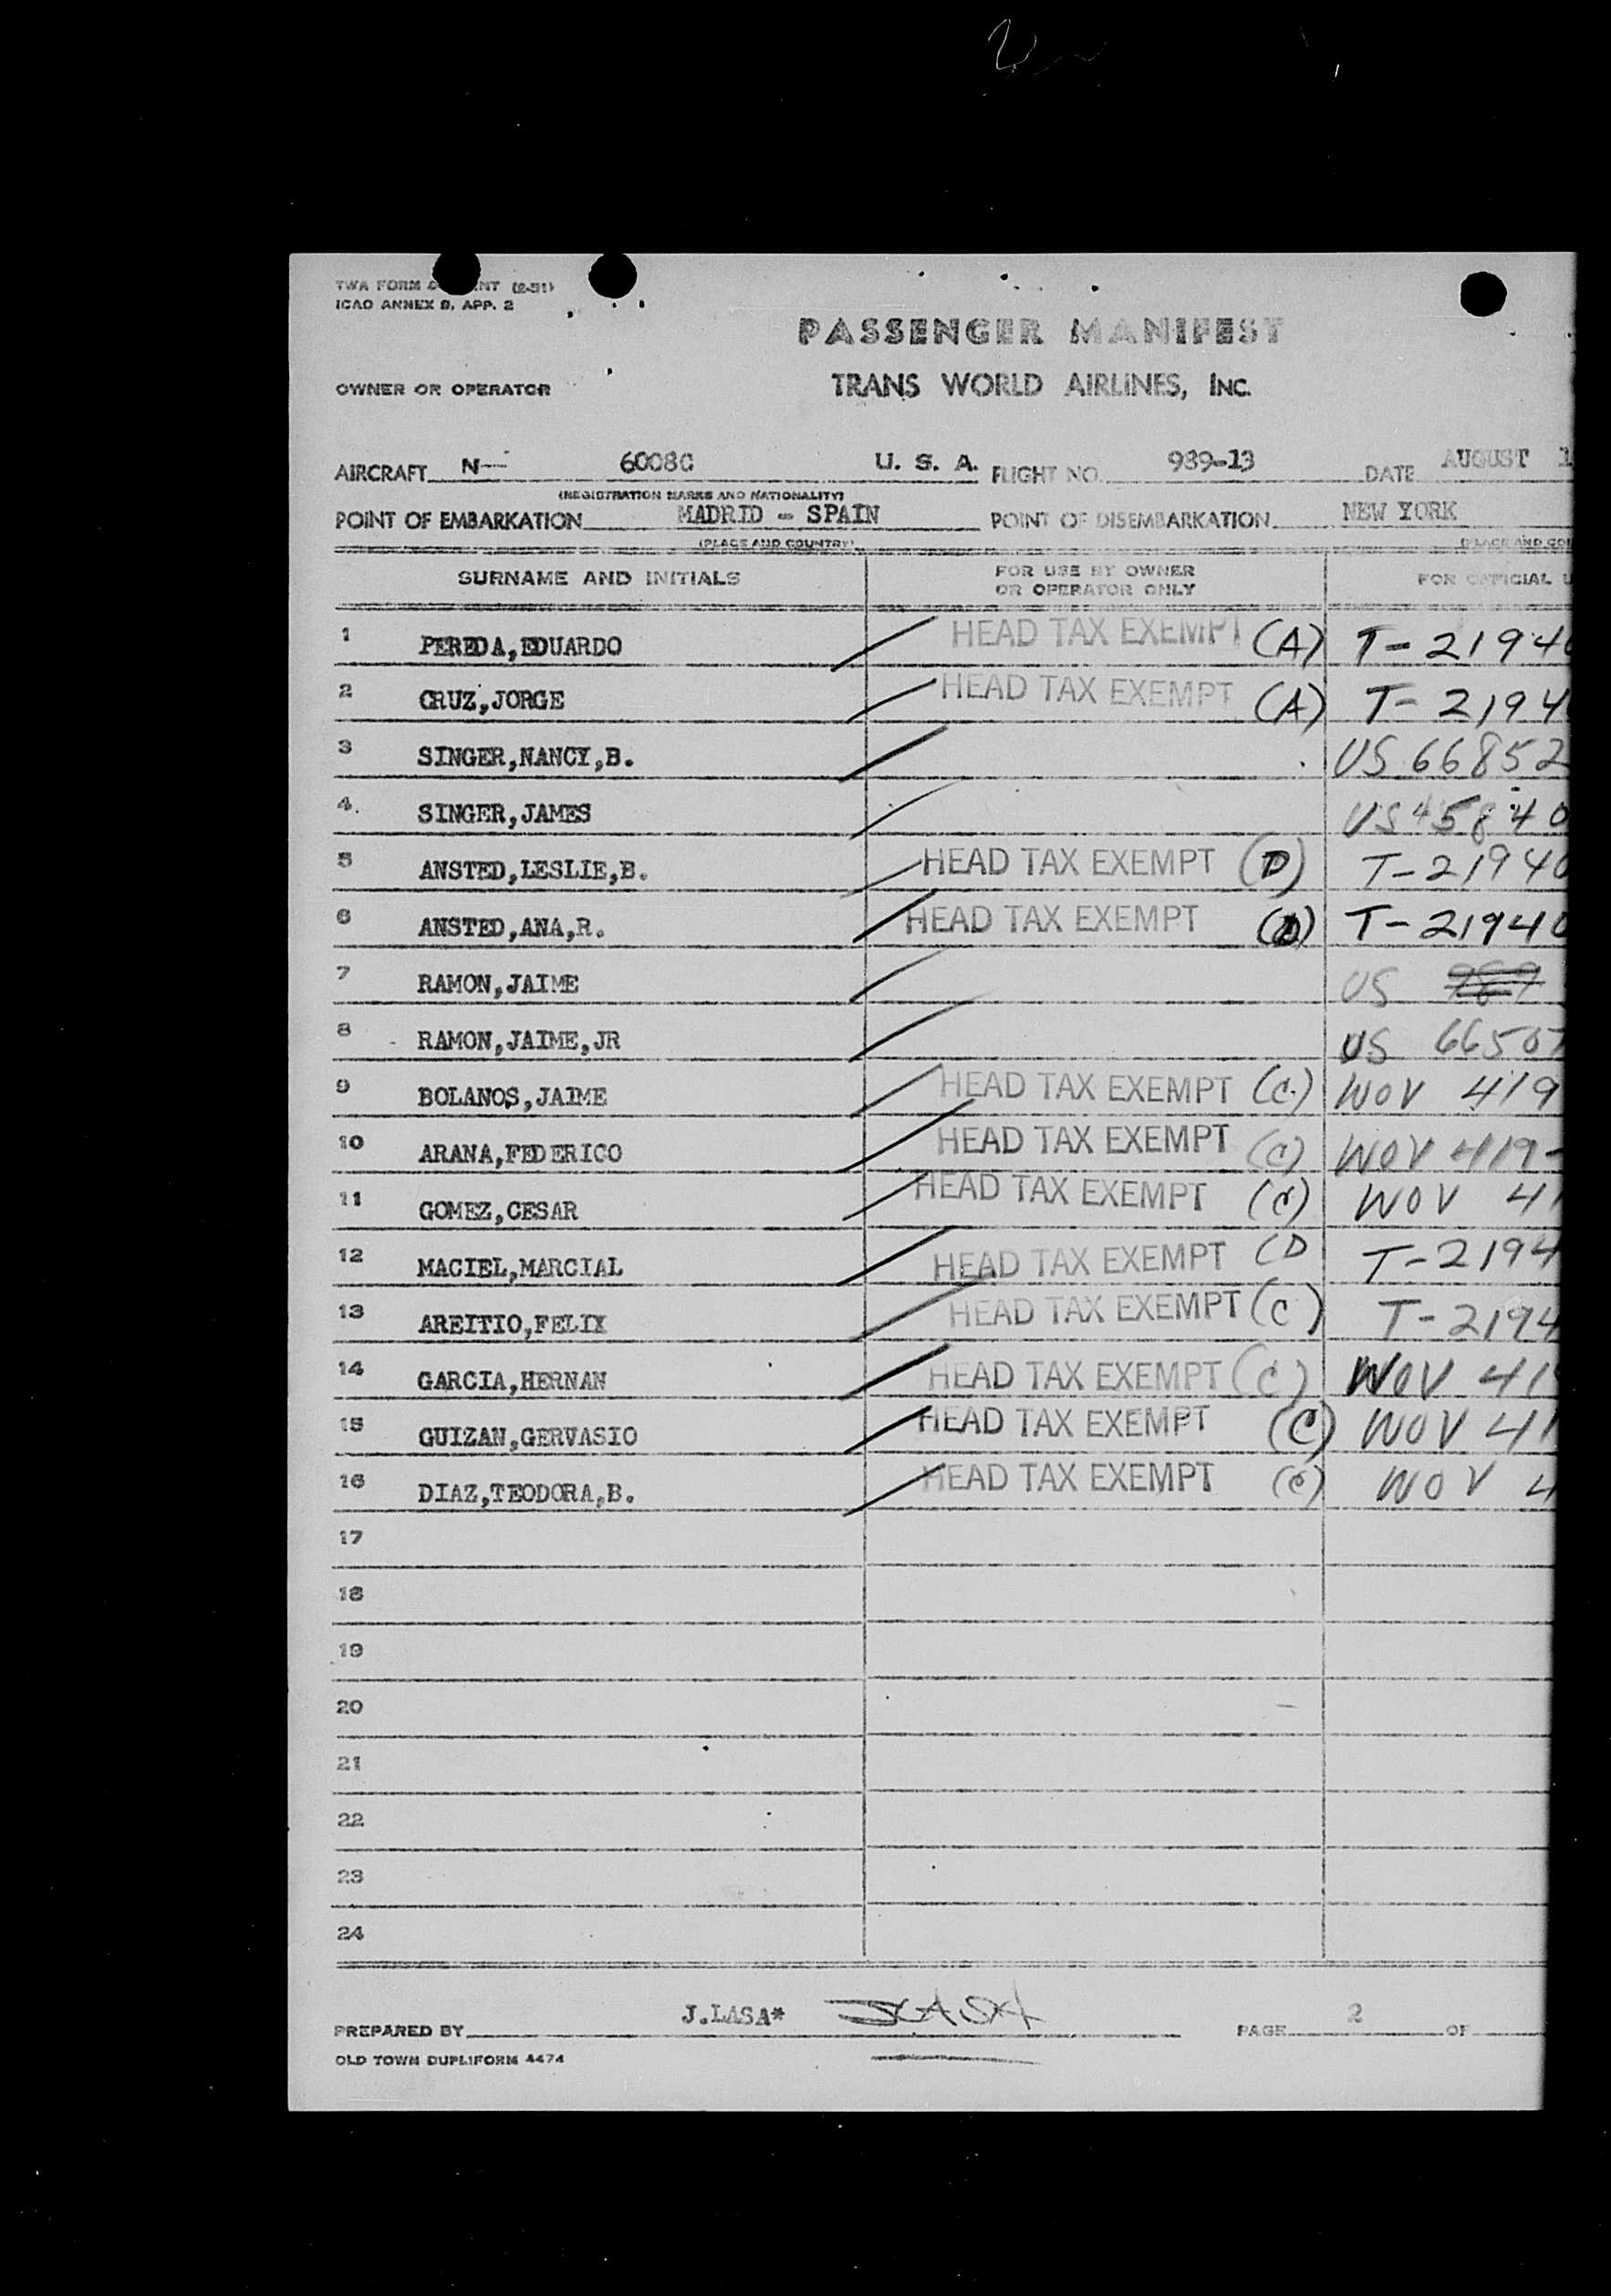 TWA FORM INT (2-51)
ICAO ANNEX 9, APP. 2
PASSENGER MANIFEST
OWNER OR OPERATOR TRANS WORLD AIRLINES, INC.
AIRCRAFT N— 6008C U. S. A. FLIGHT NO. 939-13 DATE AUGUST 1
(REGISTRATION MARKS AND NATIONALITY)
POINT OF EMBARKATION MADRID - SPAIN POINT OF DISEMBARKATION NEW YORK
(PLACE AND COUNTRY) (PLACE AND COU
SURNAME AND INITIALS FOR USE BY OWNER OR OPERATOR ONLY FOR OFFICIAL U
1 PEREDA,EDUARDO HEAD TAX EXEMPT (A) T-21940
2 CRUZ,JORGE HEAD TAX EXEMPT (A) T-2194
3 SINGER,NANCY,B. US 66852
4. SINGER,JAMES US 45840
5 ANSTED,LESLIE,B. HEAD TAX EXEMPT (D) T-21940
6 ANSTED,ANA,R. HEAD TAX EXEMPT T-21940
7 RAMON,JAIME US 989
8 RAMON,JAIME,JR US 66507
9 BOLANOS,JAIME HEAD TAX EXEMPT (C) WOV 419
10 ARANA,FEDERICO HEAD TAX EXEMPT (C) WOV 419
11 GOMEZ,CESAR HEAD TAX EXEMPT (C) WOV 41
12 MACIEL,MARCIAL HEAD TAX EXEMPT (D T-2194
13 AREITIO,FELIX HEAD TAX EXEMPT (C) T-2194
14 GARCIA,HERNAN HEAD TAX EXEMPT (C) WOV 41
15 GUIZAN,GERVASIO HEAD TAX EXEMPT (C) WOV 41
16 DIAZ,TEODORA,B. HEAD TAX EXEMPT (C) WOV 4
17
18
19
20
21
22
23
24
PREPARED BY J.LASA* JLASA PAGE 2 OF
OLD TOWN DUPLIFORM 4474